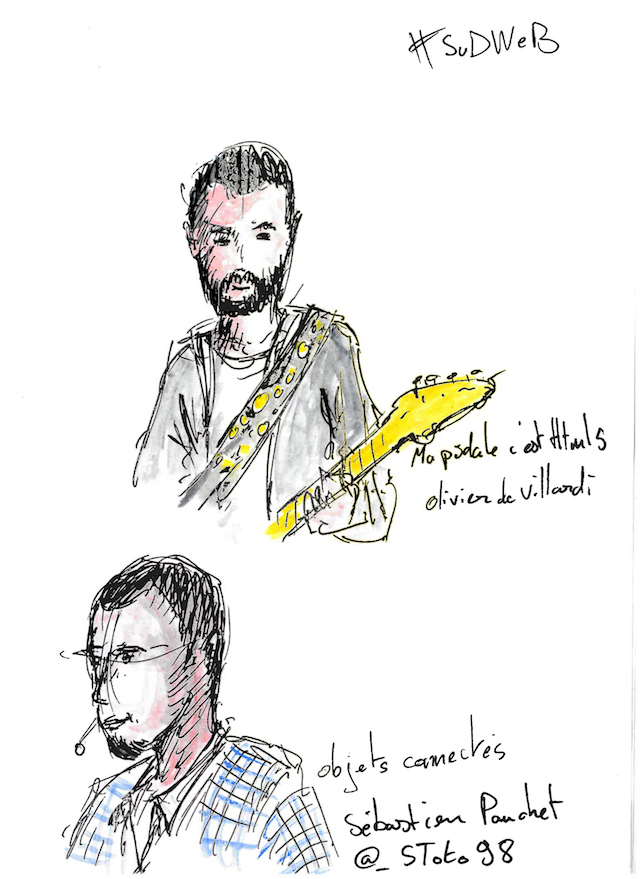 #SuDWeB
Ma pédale c'est Html5
olivier de villardi
objets connectés
Sébastien Pauchet
@_SToto98